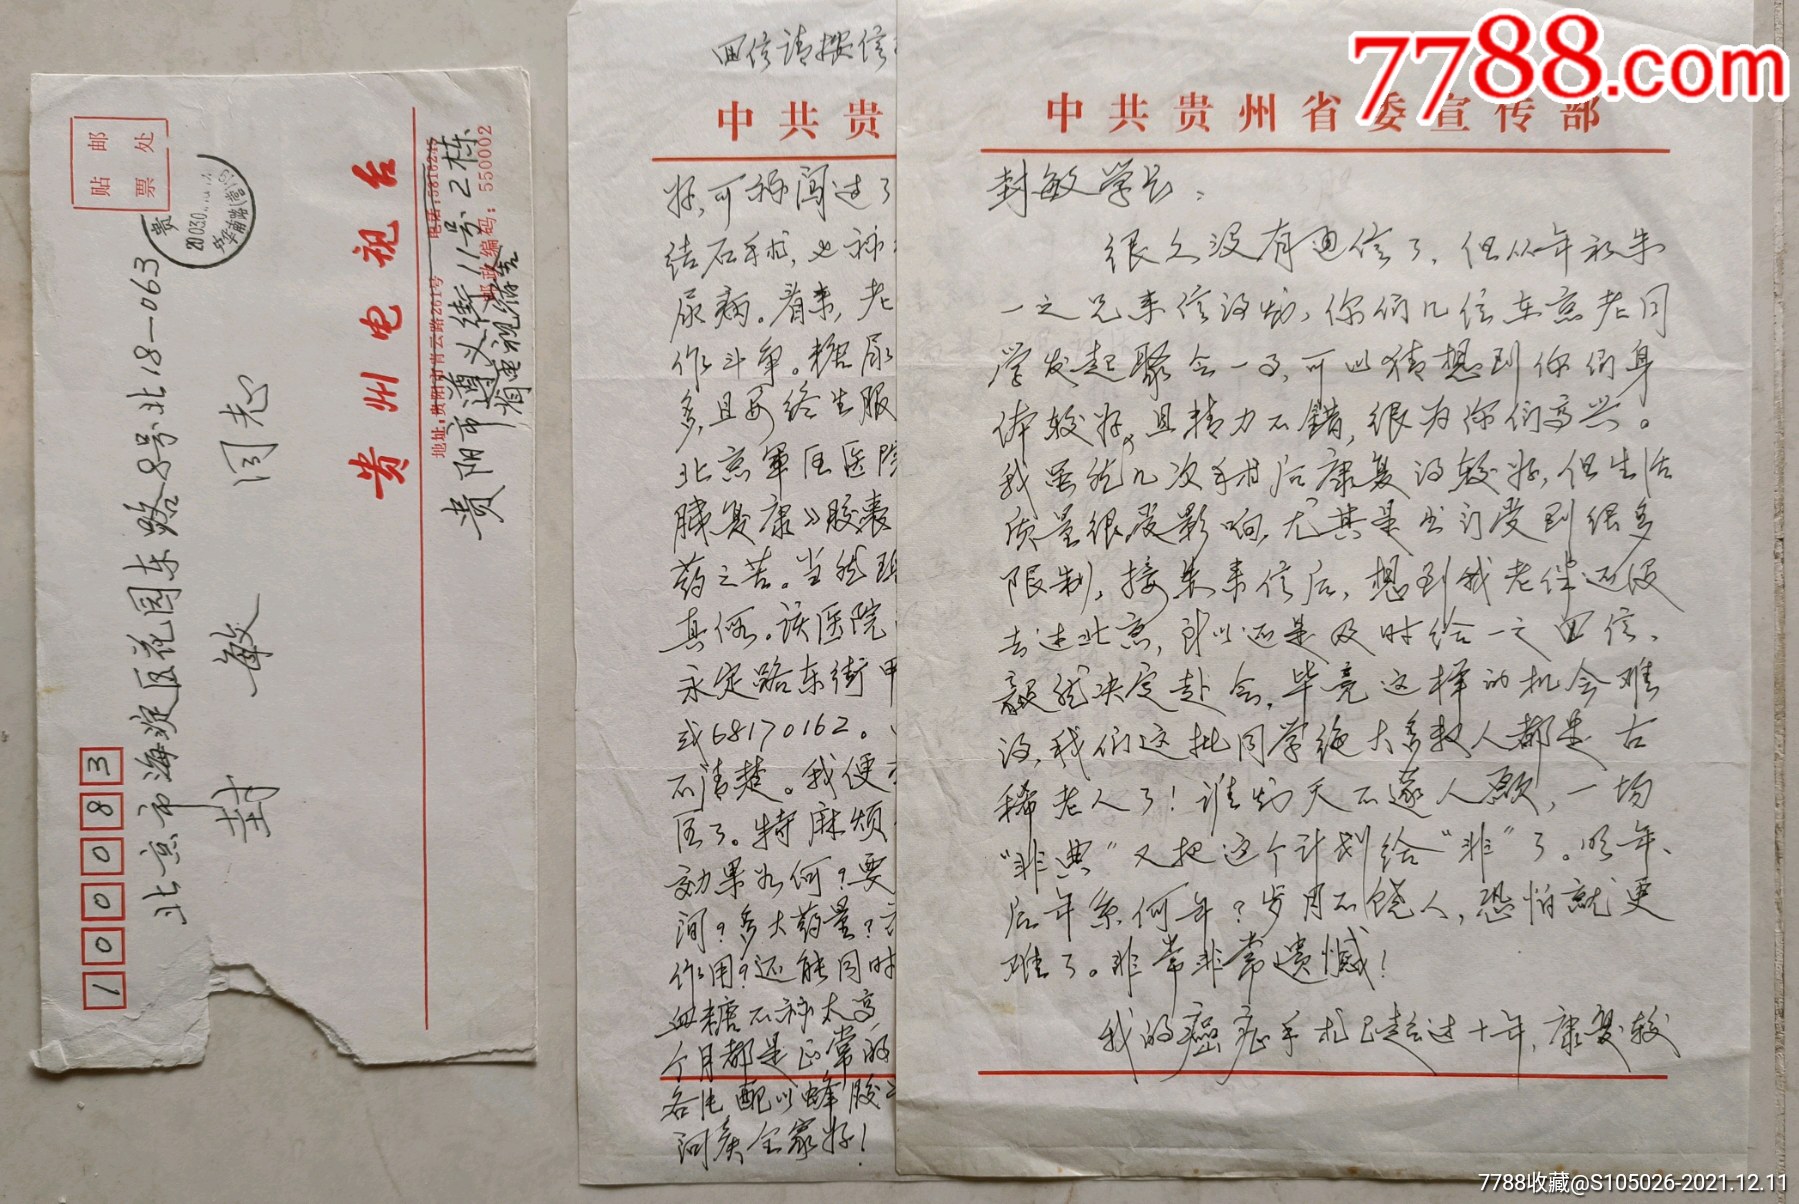 7788.com
贴邮
票处
贵
2003.0
100083
北京市海淀区花园东路8号北18-063
封敏 同志
贵州电视台
地址:贵阳市青云路261号 电话:5816215
邮政编码:550002
贵阳市遵义街11号2栋
省电视宿舍
回信请按信
中共贵
好,可称闯过了
结石手术,也称
尿病。看来,老
作斗争。糖尿
多,且要终生服
北京军区医院
胰复康》胶囊
药之苦。当然
真假。该医院
永定路东街甲
或68170162。
不清楚。我便
医了。特麻烦
效果如何?要
间?多大药量?
作用?还能同时
血糖不称太高,
个月都是正常的
各比配以蜂胶
问候全家好!
中共贵州省委宣传部
封敏学兄:
很久没有通信了,但从年初朱
一之兄来信得知,你们几位在京老同
学发起聚会一事,可以猜想到你们身
体较好,且精力不错,很为你们高兴。
我虽然几次手术后康复得较好,但生活
质量很受影响,尤其是出门受到很多
限制,接朱来信后,想到我老伴还没
去过北京,所以还是及时给一之回信,
毅然决定赴会,毕竟这样的机会难
得,我们这批同学绝大多数人都是古
稀老人了!谁知天不遂人愿,一场
“非典”又把这个计划给“非”了。明年、
后年系何年?岁月不饶人,恐怕就更
难了。非常非常遗憾!
我的癌症手术已超过十年,康复较
7788收藏@S105026-2021.12.11